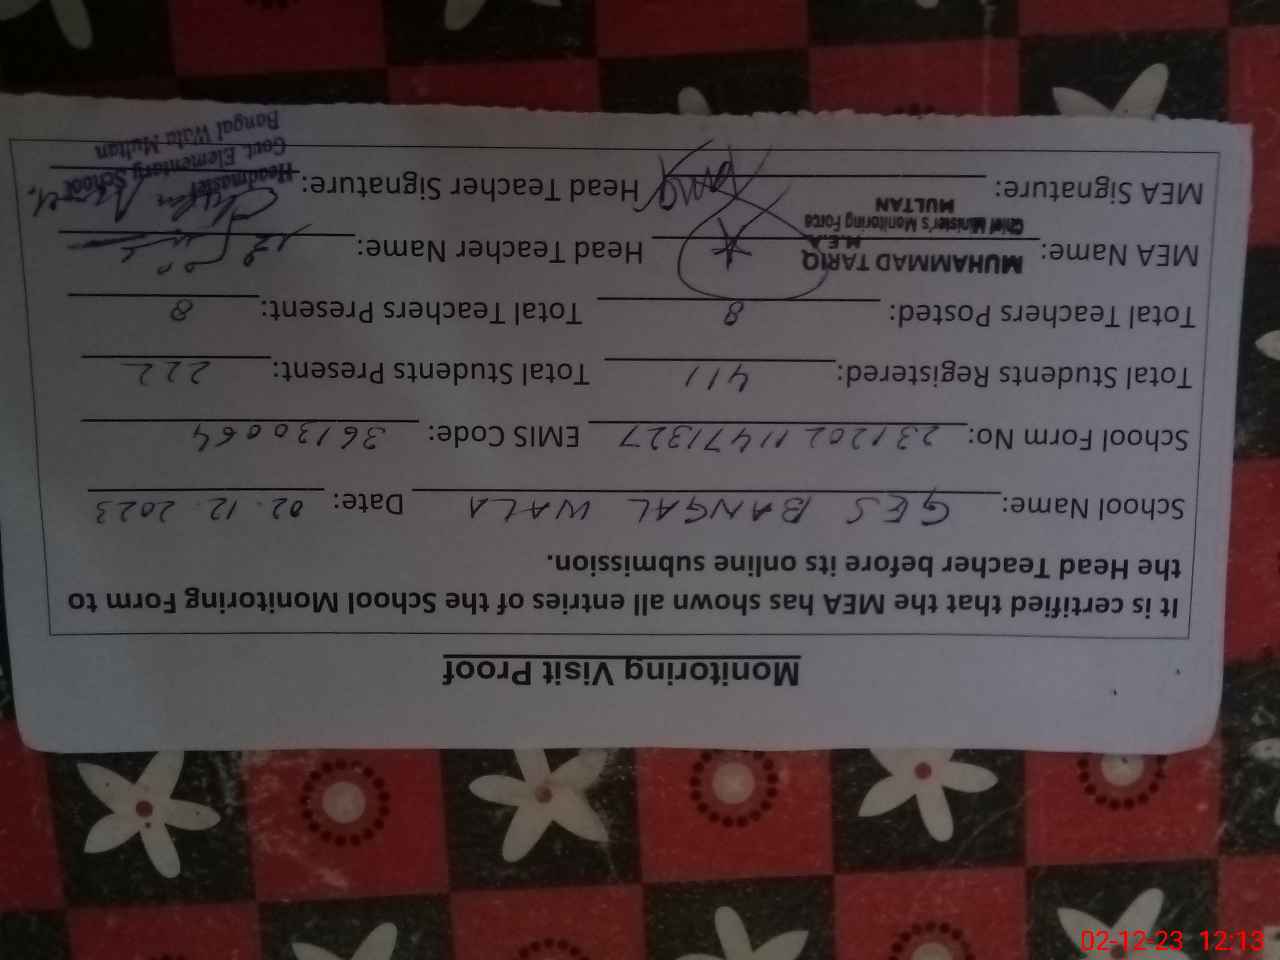 Monitoring Visit Proof
It is certified that the MEA has shown all entries of the School Monitoring Form to
the Head Teacher before its online submission.
School Name: GES BANGAL WALA Date: 02.12.2023
School Form No: 231202111471327 EMIS Code: 36130064
Total Students Registered: 411 Total Students Present: 222
Total Teachers Posted: 8 Total Teachers Present: 8
MEA Name: MUHAMMAD TARIQ Head Teacher Name:
M.E.A
Chief Minister's Monitoring Force
MULTAN
MEA Signature: Head Teacher Signature:
Headmaster
Govt. Elementary School
Bangal Wala Multan
02-12-23 12:13